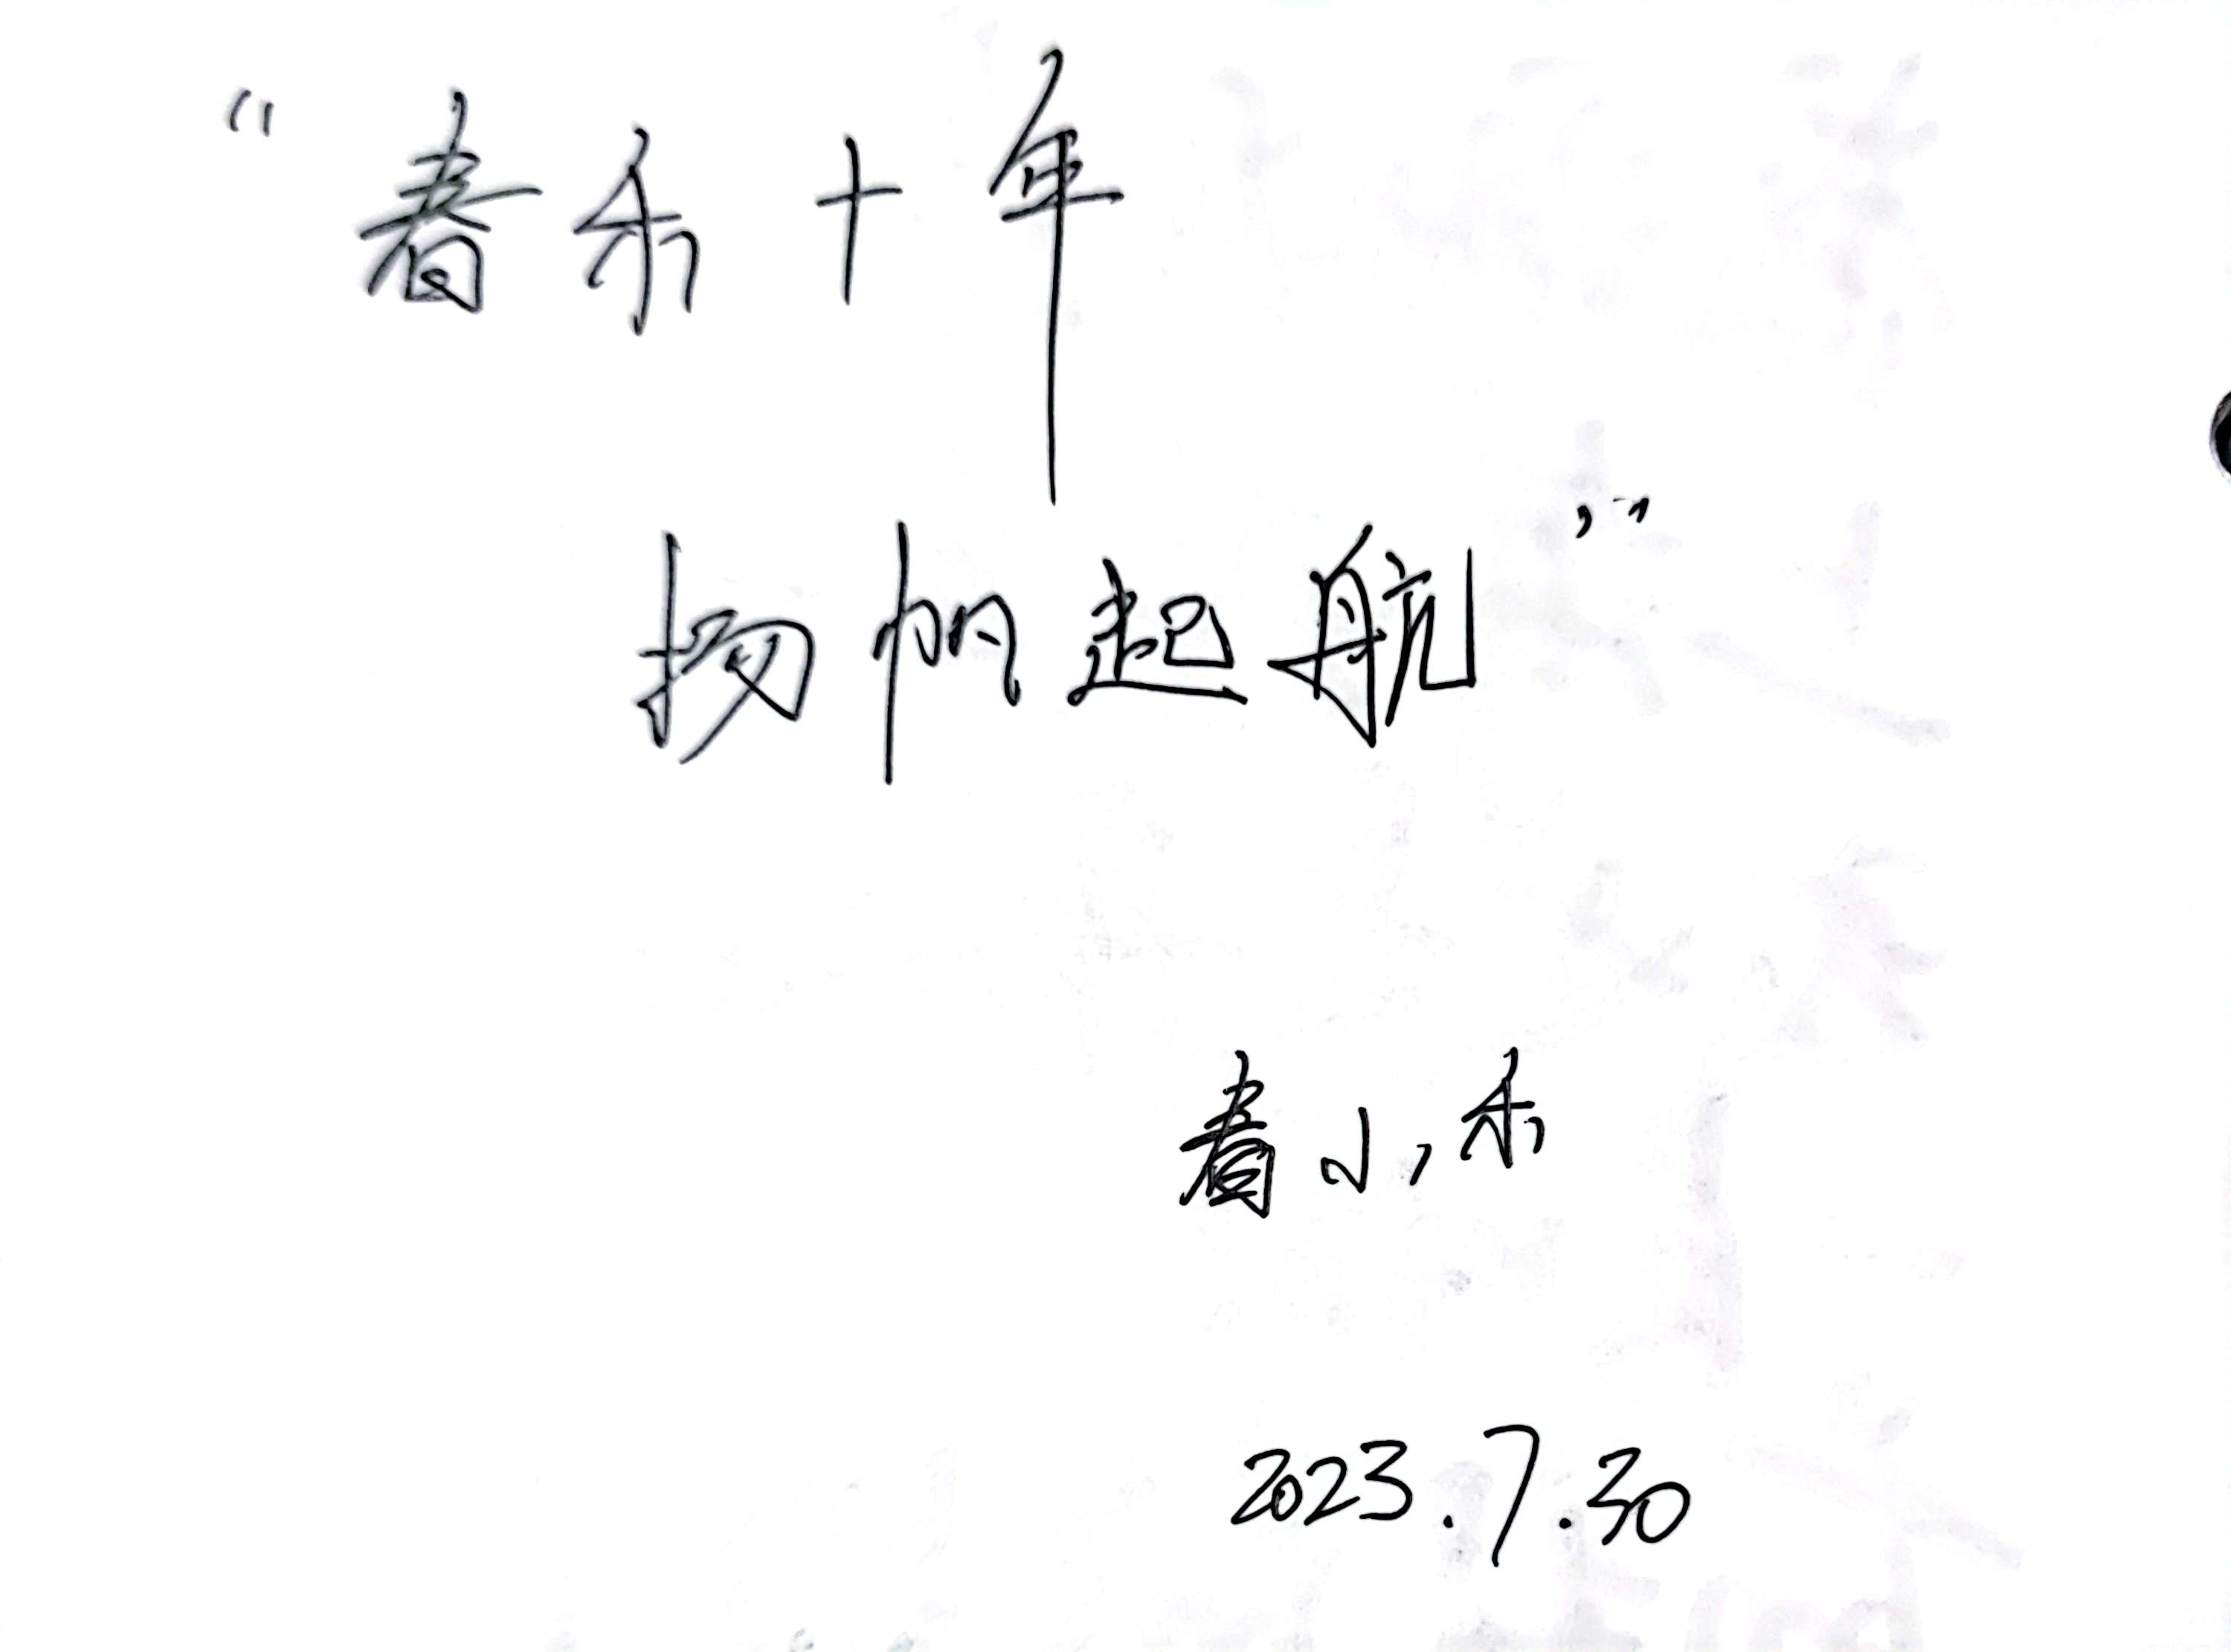 “春禾十年
扬帆起航”
春小禾
2023.7.30